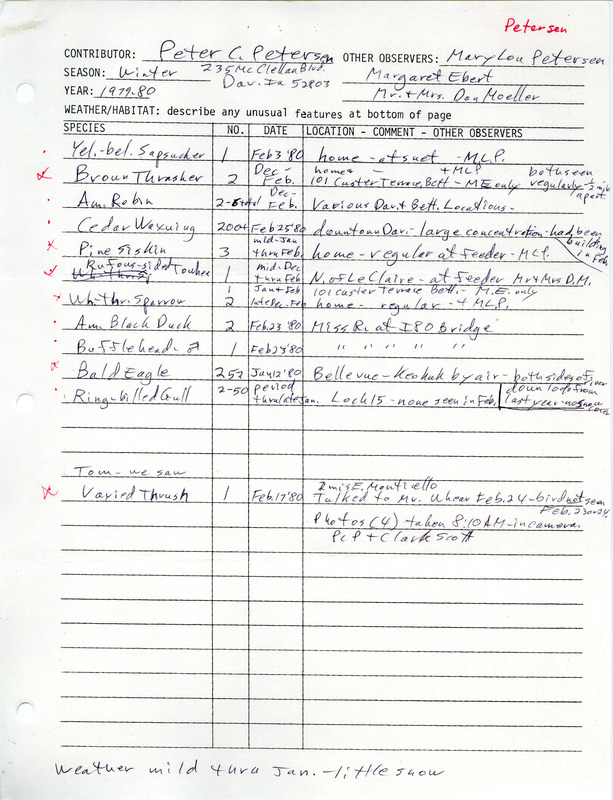 Petersen
CONTRIBUTOR: Peter C. Petersen OTHER OBSERVERS: Mary Lou Petersen
SEASON: Winter 235 McClellan Blvd. Margaret Ebert
YEAR: 1979-80 Dav. Ia 52803 Mr. + Mrs. Don Moeller
WEATHER/HABITAT: describe any unusual features at bottom of page
SPECIES NO. DATE LOCATION - COMMENT - OTHER OBSERVERS
Yel.-bel. Sapsucker 1 Feb 3 '80 home - at suet - M.L.P.
Brown Thrasher 2 Dec - Feb. home - + MLP both seen
101 Custer Terrace, Bett - ME only regularly - 2 mi apart
Am. Robin 2-8 total Dec - Feb. Various Dav. + Bett. Locations -
Cedar Waxwing 200+ Feb 25 '80 downtown Dav. - large concentration - had been building in Feb.
Pine Siskin 3 mid-Jan thru Feb. home - regular at feeder - MLP
Rufous-sided Towhee 1 mid-Dec thru Feb N. of Le Claire - at feeder Mr + Mrs D.M.
Wh-thr. S
1 Jan + Feb 101 Custer Terrace Bett. - M.E. only
Wh-thr. Sparrow 2 late Dec - Feb home - regular - + MLP.
Am. Black Duck 2 Feb. 23 '80 Miss R. at I 80 Bridge
Bufflehead - ♂ 1 Feb 23 '80 " " " "
Bald Eagle 252 Jan 12 '80 Bellevue - Keokuk by air - both sides of river
down 100% from last year - no snow cover
Ring-billed Gull 2-50 period thru late Jan. Lock 15 - none seen in Feb.
Tom - we saw
2 mi E. Monticello
Varied Thrush 1 Feb. 17 '80 Talked to Mr. Feb. 24 - bird not seen
Feb. 23 or 24
Photos (4) taken 8:10 AM - in camera.
PCP + Clark Scott
Weather mild thru Jan. - little snow